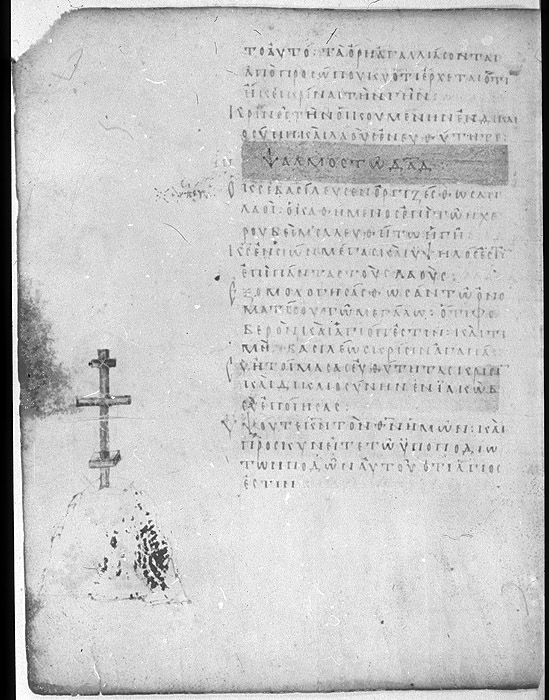 τοαυτο: τα ορη αγαλλιασονται
απο προσωπου κυ οτι ερχεται οτι
ηκει κριναι την γην:
οσυνη και λαους εν ευθυτητι:
ψαλμος τω δαδ:
ο κς εβασιλευσεν οργιζεσθωσαν
λαοι: ο καθημενος επι των χε
ρουβειμ σαλευθητω η γη:
κς εν σιων μεγας και υψηλος εστι
επι παντας τους λαους:
εξομολογησασθωσαν τω ονο
ματι σου τω μεγαλω: οτι φο
βερον και αγιον εστιν: και τι
μη βασιλεως κρισιν αγαπα:
συ ητοιμασας ευθυτητας
και δικαιοσυνην εν ιακωβ
συ εποιησας:
υψουτε κν τον θν ημων: και
προσκυνειτε τω υποποδιω
των ποδων αυτου οτι αγιος
εστιν